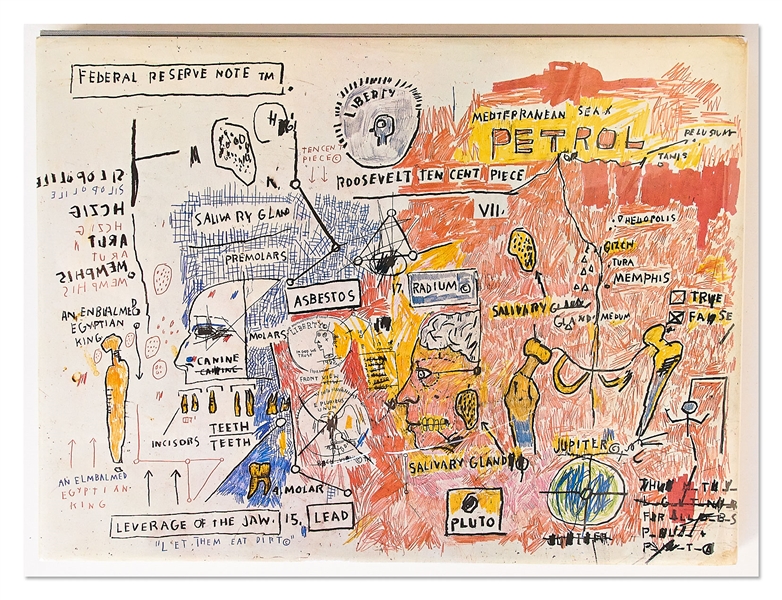 FEDERAL RESERVE NOTE TM.
LIBERTY
MEDITERRANEAN SEA
PETROL
PELUSIUM
TANIS
TEN CENT
PIECE©
ROOSEVELT TEN CENT PIECE
VII.
SALIVARY GLAND
PREMOLARS
HELIOPOLIS
GIZEH
TURA
MEMPHIS
MEMPHIS
MEMPHIS
ASBESTOS
17.
RADIUM©
SALIVARY GLAND
GLAND
MEDUM
TRUE
FALSE
AN ENBALMED
EGYPTIAN
KING
MOLARS
LIBERTY
IN GOD WE
TRUST
FRONT VIEW
CANINE
CANINE
E PLURIBUS
UNUM
INCISORS
TEETH
TEETH
SALIVARY GLAND
JUPITER
AN ELMBALMED
EGYPTIAN
KING
A. MOLAR
PLUTO
LEVERAGE OF THE JAW.
15.
LEAD
"LET THEM EAT DIRT©"